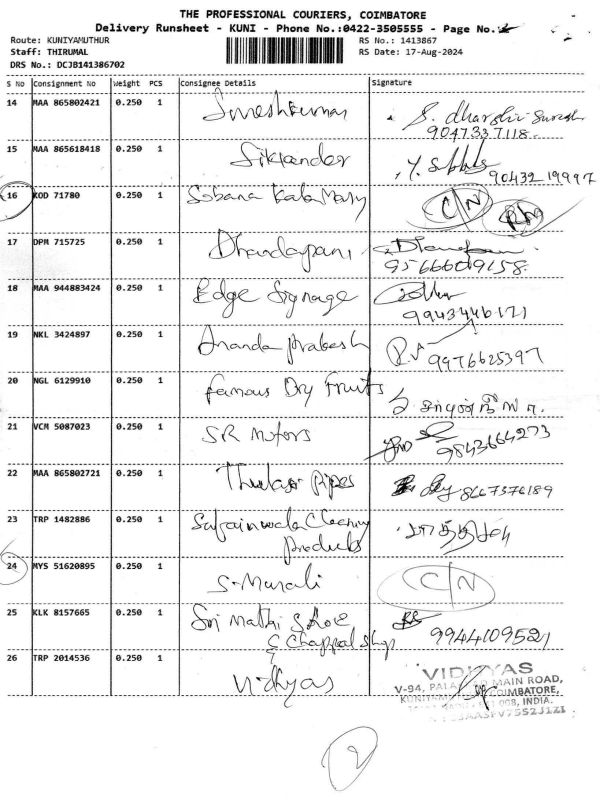 THE PROFESSIONAL COURIERS, COIMBATORE
Delivery Runsheet - KUNI - Phone No.:0422-3505555 - Page No.:2
Route: KUNIYAMUTHUR
RS No.: 1413867
Staff: THIRUMAL
RS Date: 17-Aug-2024
DRS No.: DCJB141386702
S No Consignment No Weight PCS Consignee Details Signature
14 MAA 865802421 0.250 1 Sureshkumar S. dharshi Suresh
9047337118.
15 MAA 865618418 0.250 1 Sikkander
9043219997
16 KOD 71780 0.250 1 Sobana Kala Mary C/N
17 DPM 715725 0.250 1 Dhandapani
9566609158.
18 MAA 944883424 0.250 1 Edge Signage
9943446171
19 NKL 3424897 0.250 1 Ananda Prakash
9976625397
20 NGL 6129910 0.250 1 Famous Dry Fruits
21 VCM 5087023 0.250 1 SR Motors
9843664273
22 MAA 865802721 0.250 1 Pipes 8667376189
23 TRP 1482886 0.250 1 Safaiwala Cleaning
Products
24 MYS 51620895 0.250 1 S. Murali C/N
25 KLK 8157665 0.250 1 Sri Mathi Store
& Chappal Shop 9944109521
26 TRP 2014536 0.250 1 Vidhyas
VIDHYAS
V-94, MAIN ROAD,
COIMBATORE,
008, INDIA.
2